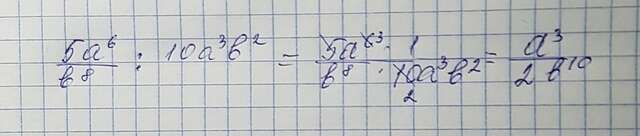 5a⁶/b⁸ : 10a³b² = 5a⁶ ³ · 1/b⁸ · 10a³b² 2 = a³/2b¹⁰